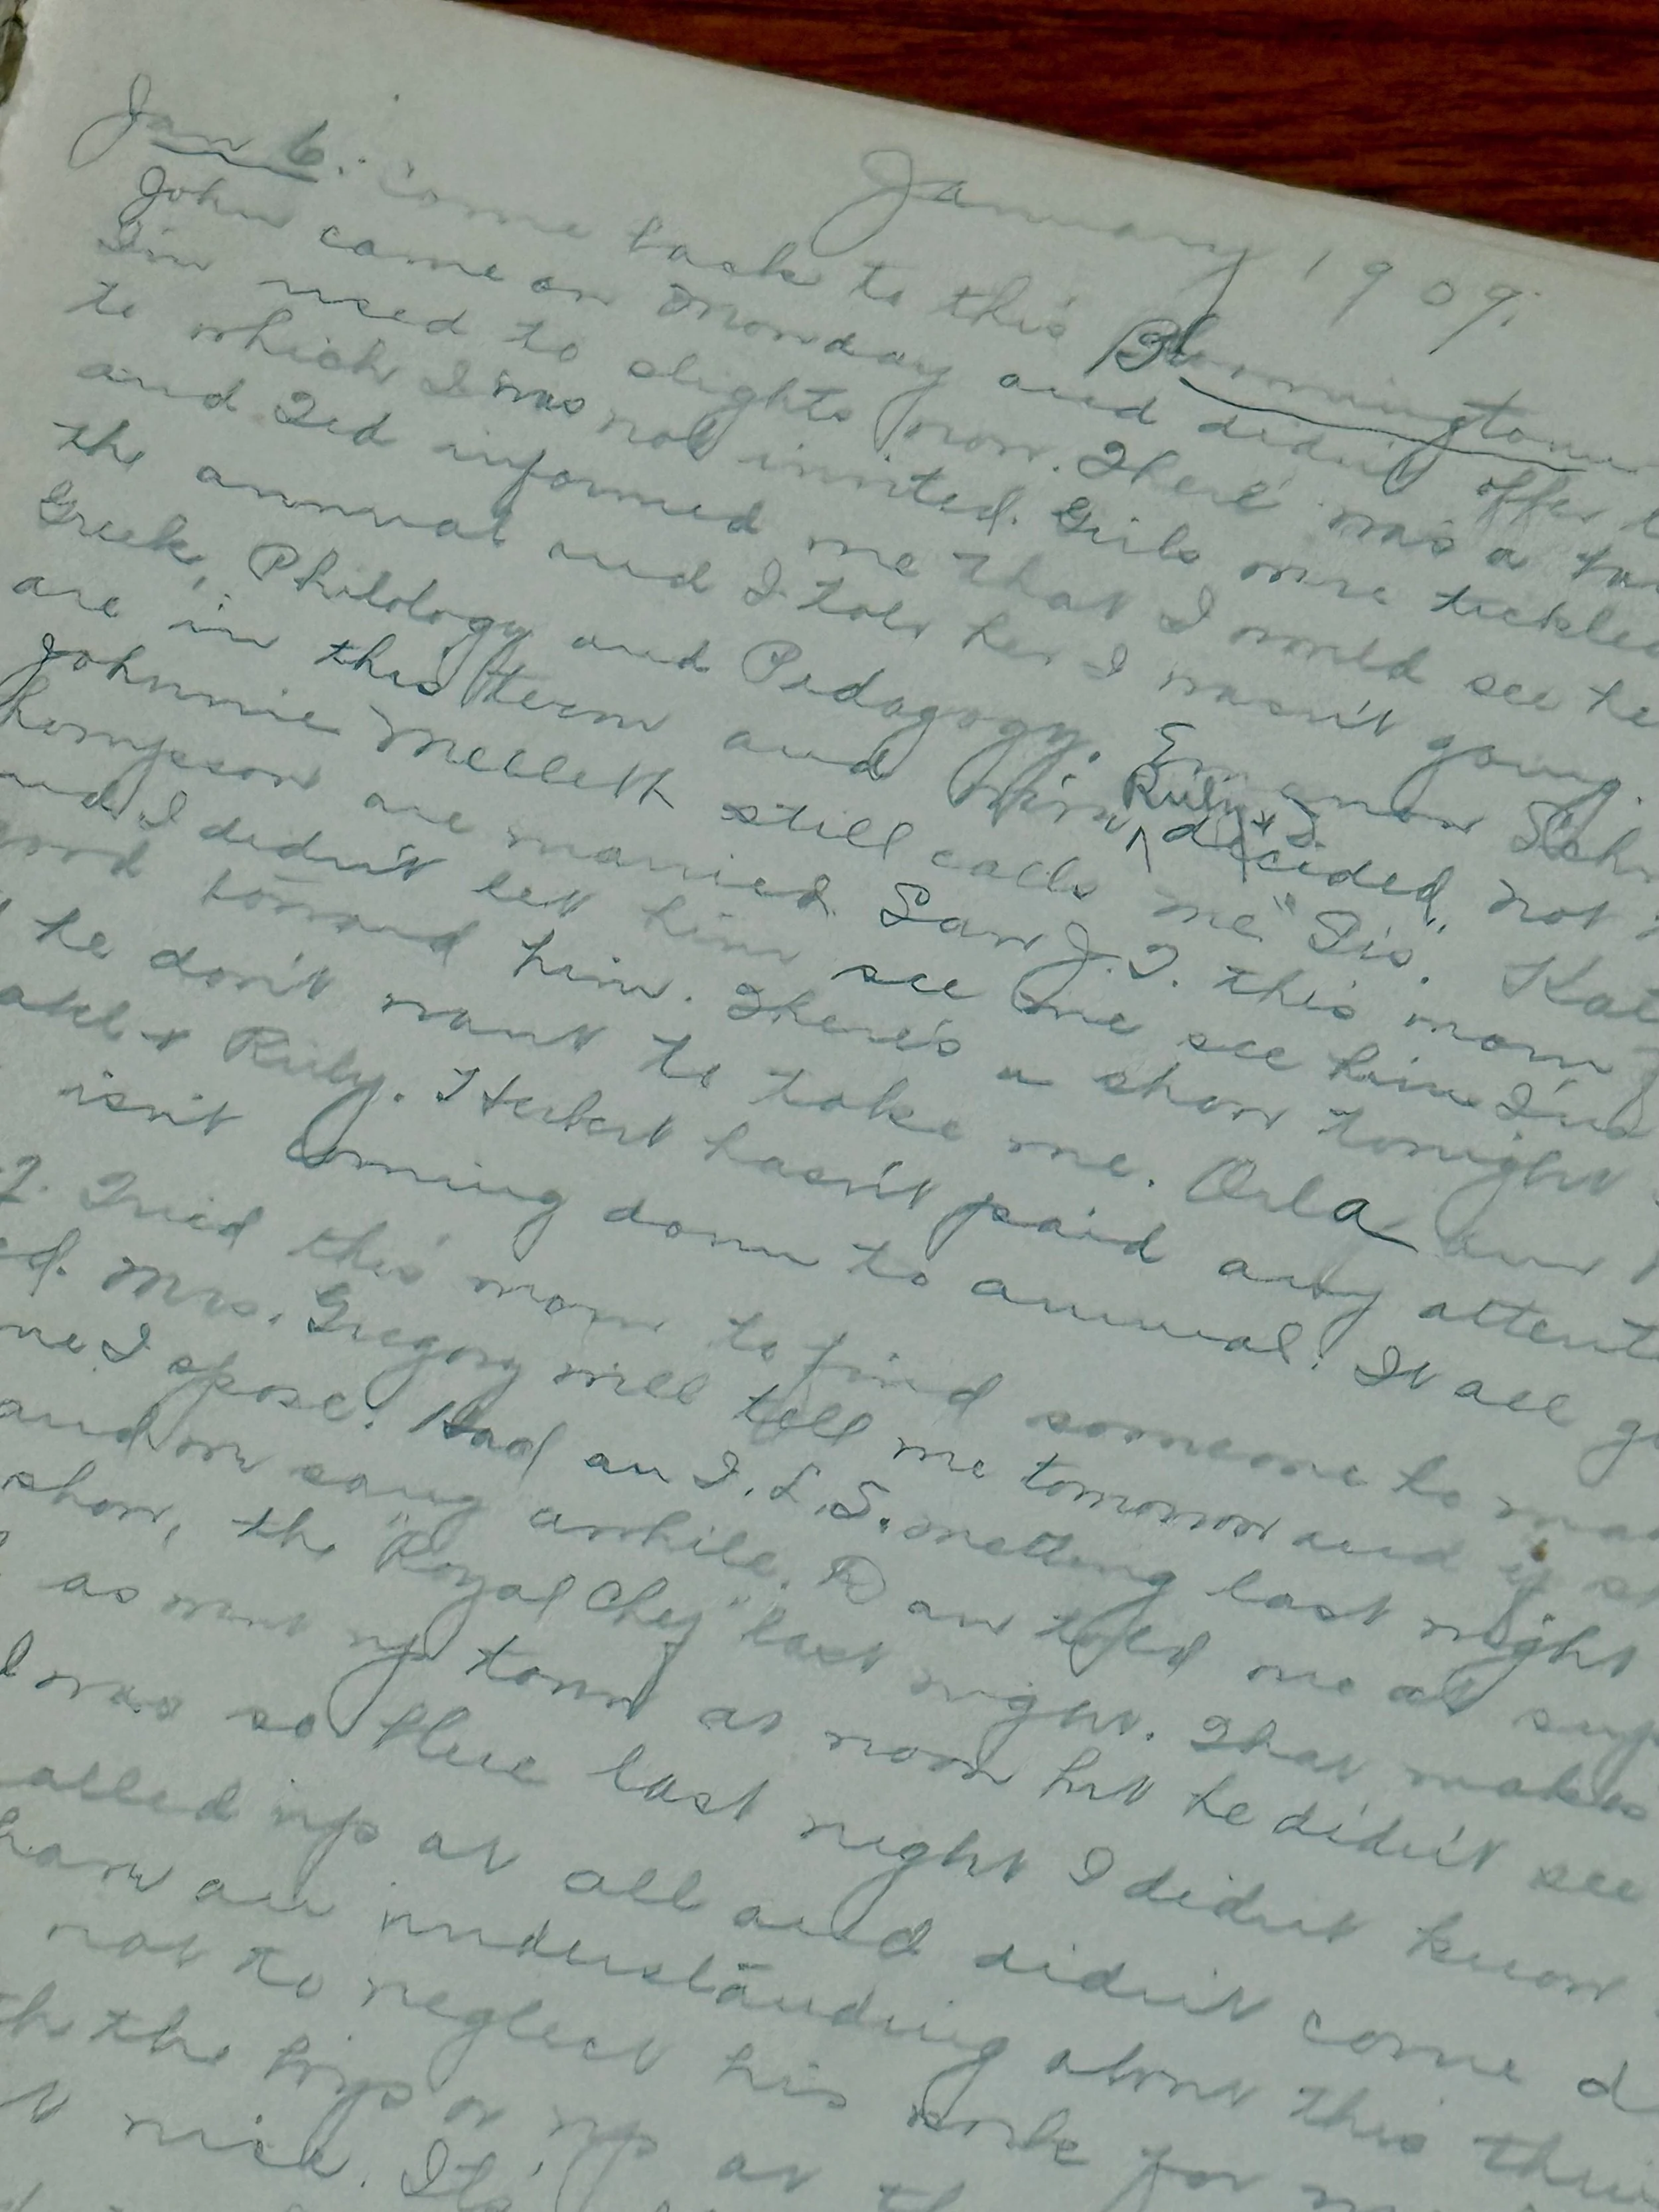 January 1909.
Jan 6. Come back to this Bloomington
John came on Monday and didn't offer
I'm used to slights now. There was a
to which I was not invited. Girls were tickled
and Ted informed me that I would see
the annual and I told her I wasn't going.
Greek, Philology and Pedagogy.
are in this term and Ruby & I decided not
Johnnie still calls me "Sis."
hompson are married. Saw J. T. this morn
and I didn't let him see me see him I'm
good toward him. There's a show tonight
he don't want to take me. Orla
& Ruby. Herbert hasn't paid any attent
isn't coming down to annual. It all
7. Tried this morn to find someone to
ed. Mrs. Gregory will tell me tomorrow and if
me I spose. Had an I. L. S. meeting last night
and we sang awhile. Dan told me at sup
show, the "Royal Chef" last night. That makes
as went up town at noon but he didn't see
I was so blue last night I didn't know
alled up at all and didn't come d
have an understanding about this thin
not to neglect his work for
th the boys or up at
nice. It's